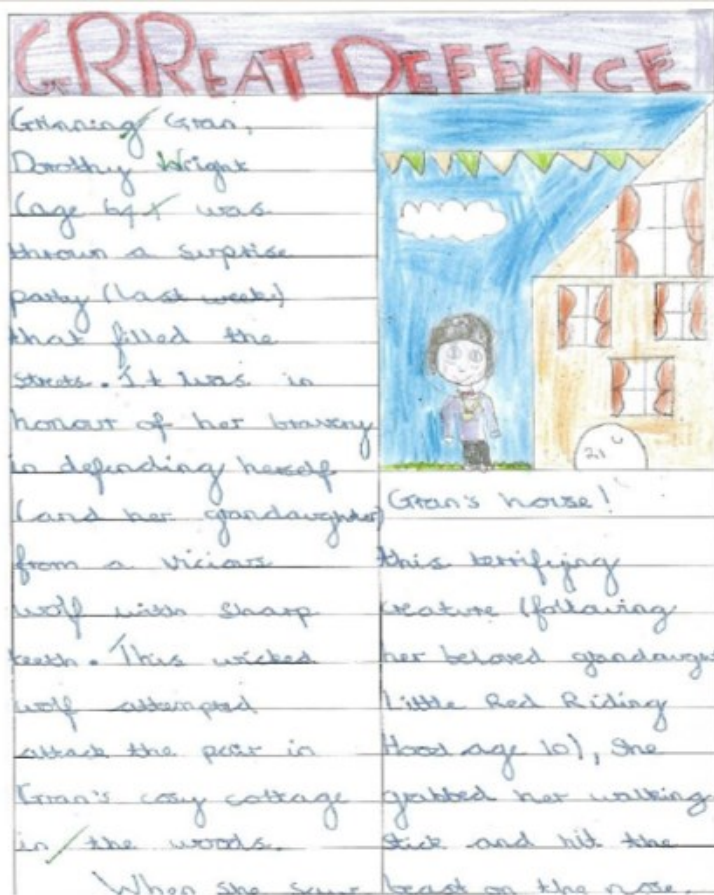 GRREAT DEFENCE
Grinning Gran,
Dorothy Wright
(age 64) was
thrown a surprise
party (last week)
that filled the
streets. It was in
honour of her bravery
in defending herself
(and her grandaughter)
from a vicious
wolf with sharp
teeth. This wicked
wolf attempted
attack the pair in
Gran's cosy cottage
in the woods.
When she saw
21
Gran's house!
this terrifying
creature (following
her beloved grandaught
Little Red Riding
Hood age 10), she
grabbed her walking
stick and hit the
beast on the nose.